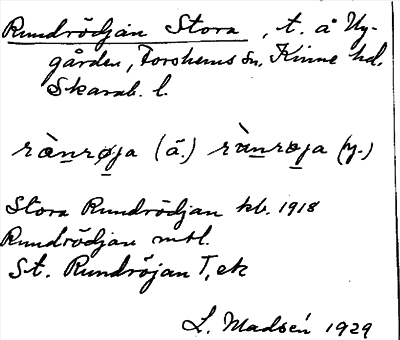 Rundrödjan Stora, t. å Ny-
gården, Forshems sn, Kinne hd,
Skarab. l.
rànrøja (ä.) rànrøja (y.)
Stora Rundrödjan kb. 1918
Rundrödjan mtl.
St. Rundröjan T, ek
L. Madsén 1929